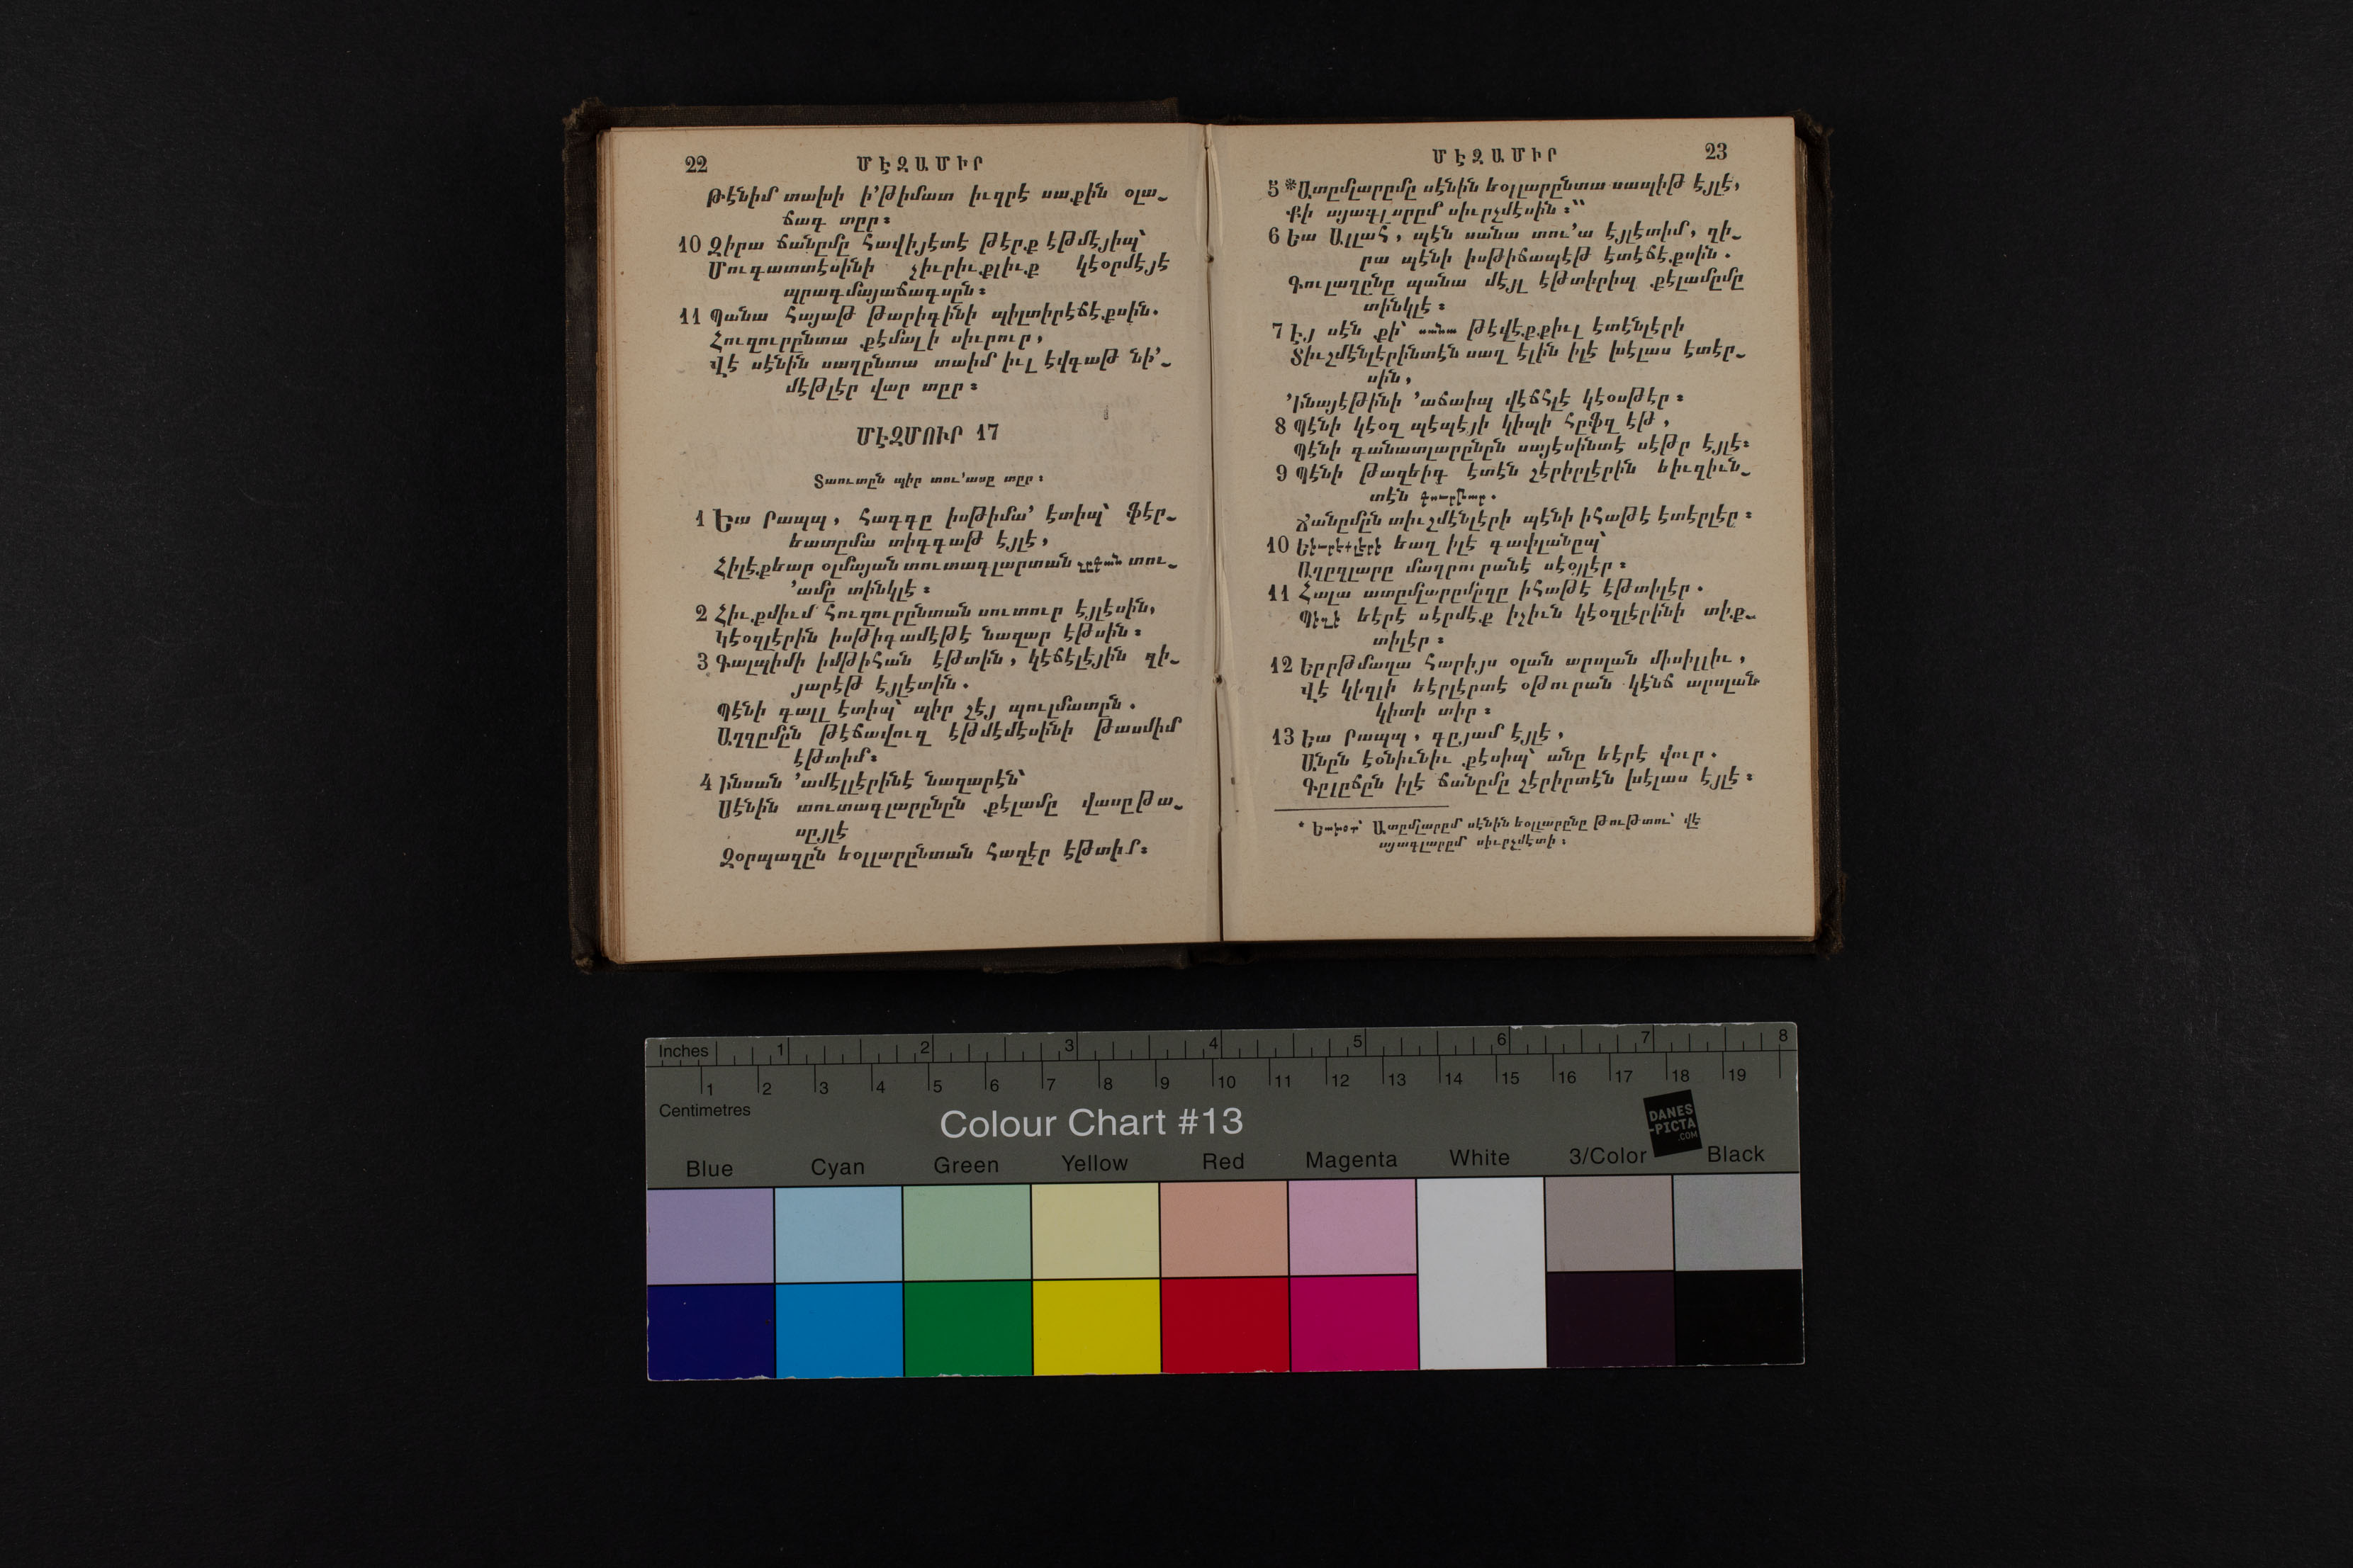 22 ՄԷԶԱՄԻՐ
թէնիմ տախի ի՚թիմատ իւզրէ սաքին օլա֊
ճագ տըր։
10 Զիրա ճանըմը հավիյէտէ թէրք էթմէյիպ՝
Մուգատտէսինի չիւրիւքլիւք կէօրմէյէ
պրագմայաճագսըն։
11 Պանա հայաթ թարիգինի պիլտիրէճէքսին.
Հուզուրընտա քէմալի սիւրուր,
Վէ սէնին սաղընտա տաիմ իւլ էվգաթ նի՚֊
մէթլէր վար տըր։
ՄԷԶՄՈՒՐ 17
Տաուտըն պիր տու՚ասը տըր։
1 Եա Րապպ, հագգը իսթիմա՚ էտիպ՝ ֆէր֊
եատըմա տիգգաթ էյլէ,
Հիլէքեար օլմայան տուտագլարտան չըքան տու֊
՚ամը տինկլէ։
2 Հիւքմիւմ հուզուրընտան սուտուր էյլէսին,
Կէօզլէրին իսթիգամէթէ նազար էթսին։
3 Գալպիմի իմթիհան էթտին, կէճէլէյին զի֊
յարէթ էյլէտին.
Պէնի գալլ էտիպ՝ պիր չէյ պուլմատըն.
Աղզըմըն թէճավուզ էթմէմէսինի թասմիմ
էթտիմ։
4 Ինսան ՚ամէլլէրինէ նազարէն՝
Սէնին տուտագլարընըն քէլամը վասըթա֊
սըյլէ
Զօրպազըն եօլլարընտան հազէր էթտիմ։
ՄԷԶԱՄԻՐ 23
5 *Ատըմլարըմը սէնին եօլլարընտա սապիթ էյլէ,
Քի այագլարըմ սիւրչմէսին։"
6 Եա Ալլահ, պէն սանա տու՚ա էյլէտիմ, զի֊
րա պէնի իսթիճապէթ էտէճէքսին.
Գուլաղընը պանա մէյլ էթտիրիպ քէլամըմը
տինկլէ։
7 Էյ սէն քի՝ սանա թէվէքքիւլ էտէնլէրի
Տիւշմէնլէրինտէն սաղ էլին իլէ խէլաս էտէր֊
սին,
՚Ինայէթինի ՚աճաիպ վէճհլէ կէօսթէր։
8 Պէնի կէօզ պէպէյի կիպի հըֆզ էթ,
Պէնի գանատլարընըն սայէսինտէ սէթր էյլէ։
9 Պէնի թազեիգ էտէն չէրիրլէրին եիւզիւն֊
տէն գուրթար.
Ճանըմըն տիւշմէնլէրի պէնի իհաթէ էտէրլէր։
10 Եիւրէքլէրի եաղ իլէ գափլանըպ՝
Աղըզլարը մաղրուրանէ սէօյլէր։
11 Հալա ատըմլարըմըզը իհաթէ էթտիլէր.
Պիզի եէրէ սէրմէք իչիւն կէօզլէրինի տիք֊
տիլէր։
12 Եըրթմաղա հարիյս օլան արսլան միսիլլիւ,
Վէ կիզլի եէրլէրտէ օթուրան կէնճ արսլան
կիտի տիր։
13 Եա Րապպ, գըյամ էյլէ,
Անըն էօնիւնիւ քէսիպ՝ անը եէրէ վուր.
Գըլըճըն իլէ ճանըմը չէրիրտէն խէլաս էյլէ։
* Եախօտ՝ Ատըմլարըմ սէնին եօլլարընը թութտու՝ վէ
այագլարըմ սիւրչմէտի։
Inches 1 2 3 4 5 6 7 8
1 2 3 4 5 6 7 8 9 10 11 12 13 14 15 16 17 18 19
Centimetres
Colour Chart #13
DANES
-PICTA
.COM
Blue Cyan Green Yellow Red Magenta White 3/Color Black